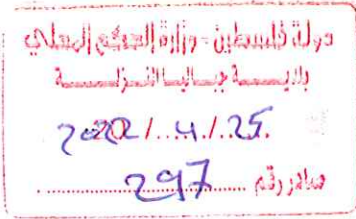 دولة فلسطين - وزارة الحكم المحلي
بلدية جباليا النزلة
2022/4/25
صادر رقم 297